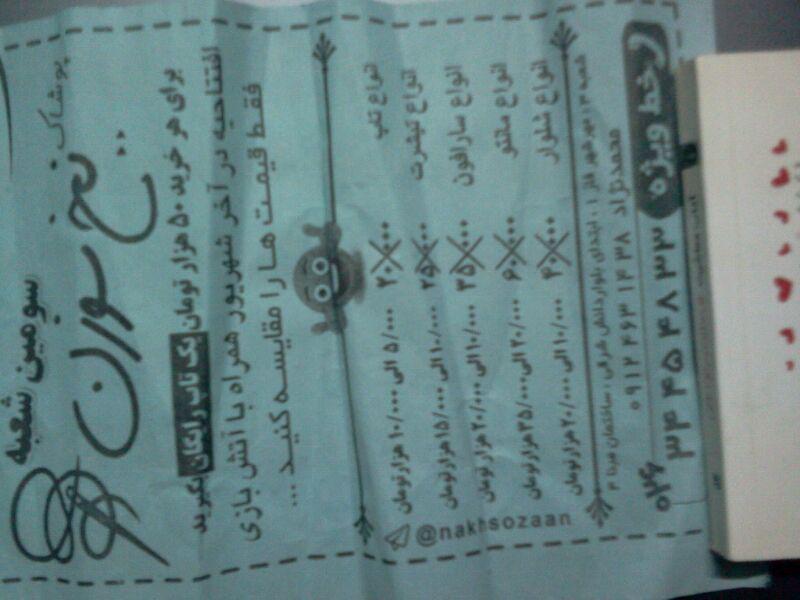 سومین شعبه
پوشاک
نخ سوزن
برای هر خرید ۵۰ هزار تومان یک تاپ رایگان بگیرید
افتتاحیه در آخر شهریور همراه با آتش بازی
فقط قیمت ها را مقایسه کنید ...
انواع تاپ ۲۰/۰۰۰ ۵/۰۰۰ الی ۱۰/۰۰۰ هزار تومان
انواع تیشرت ۲۵/۰۰۰ ۱۰/۰۰۰ الی ۱۵/۰۰۰ هزار تومان
انواع سارافون ۳۵/۰۰۰ ۱۰/۰۰۰ الی ۲۰/۰۰۰ هزار تومان
انواع مانتو ۶۰/۰۰۰ ۲۰/۰۰۰ الی ۳۵/۰۰۰ هزار تومان
انواع شلوار ۴۰/۰۰۰ ۱۰/۰۰۰ الی ۲۰/۰۰۰ هزار تومان
@nakhsozaan
شعبه ۳ : مهرشهر فاز ۱ ، ابتدای بلوار دانش شرقی ، ساختمان مینا ۲
محمدنژاد ۰۹۱۲ ۴۶۳ ۱۴ ۳۸
خط ویژه ۳۳ ۴۸ ۴۵ ۳۴ ۰۲۶